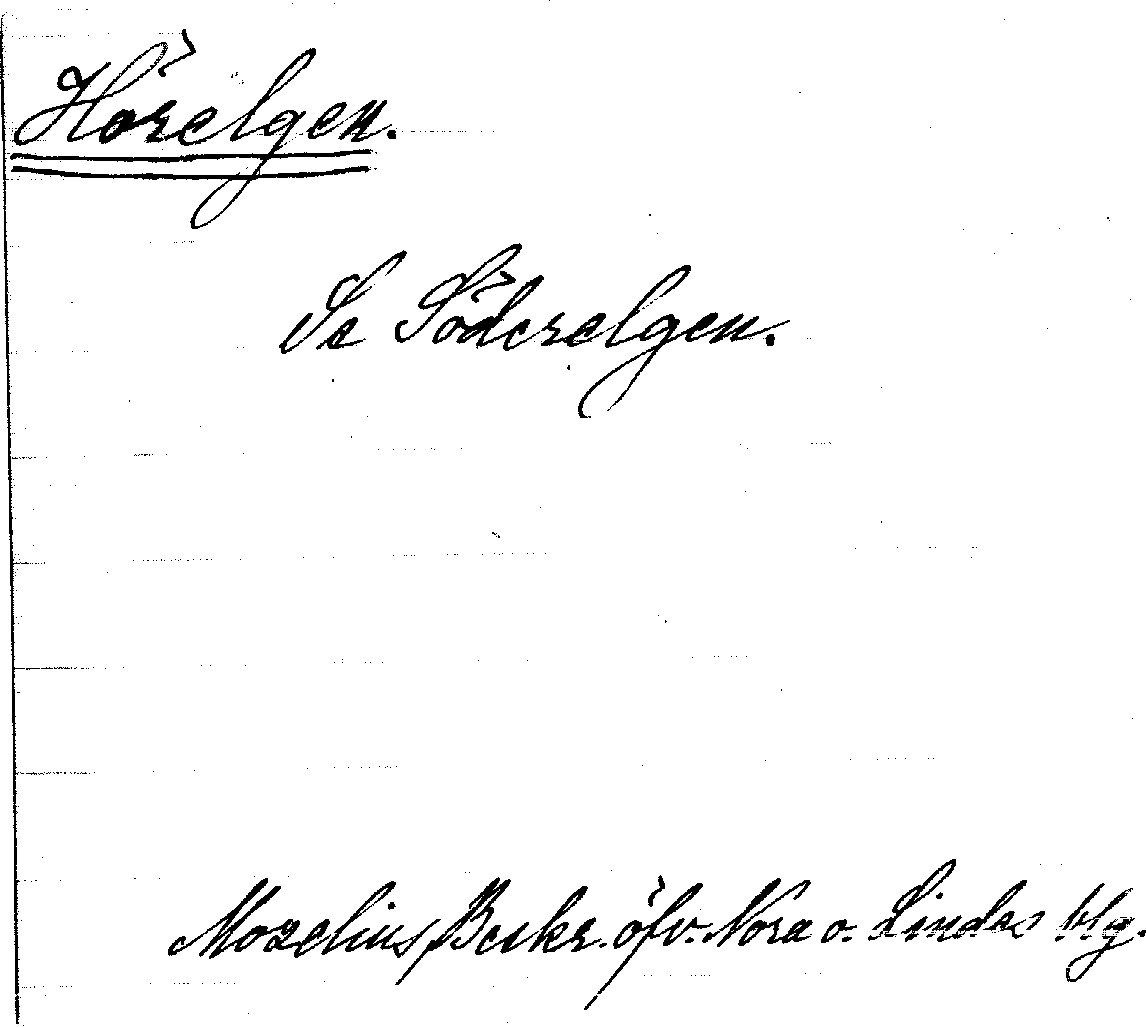 Hörelgen.
Se Söderelgen.
Morelius, Beskr. öfv. Nora o. Lindes blg.